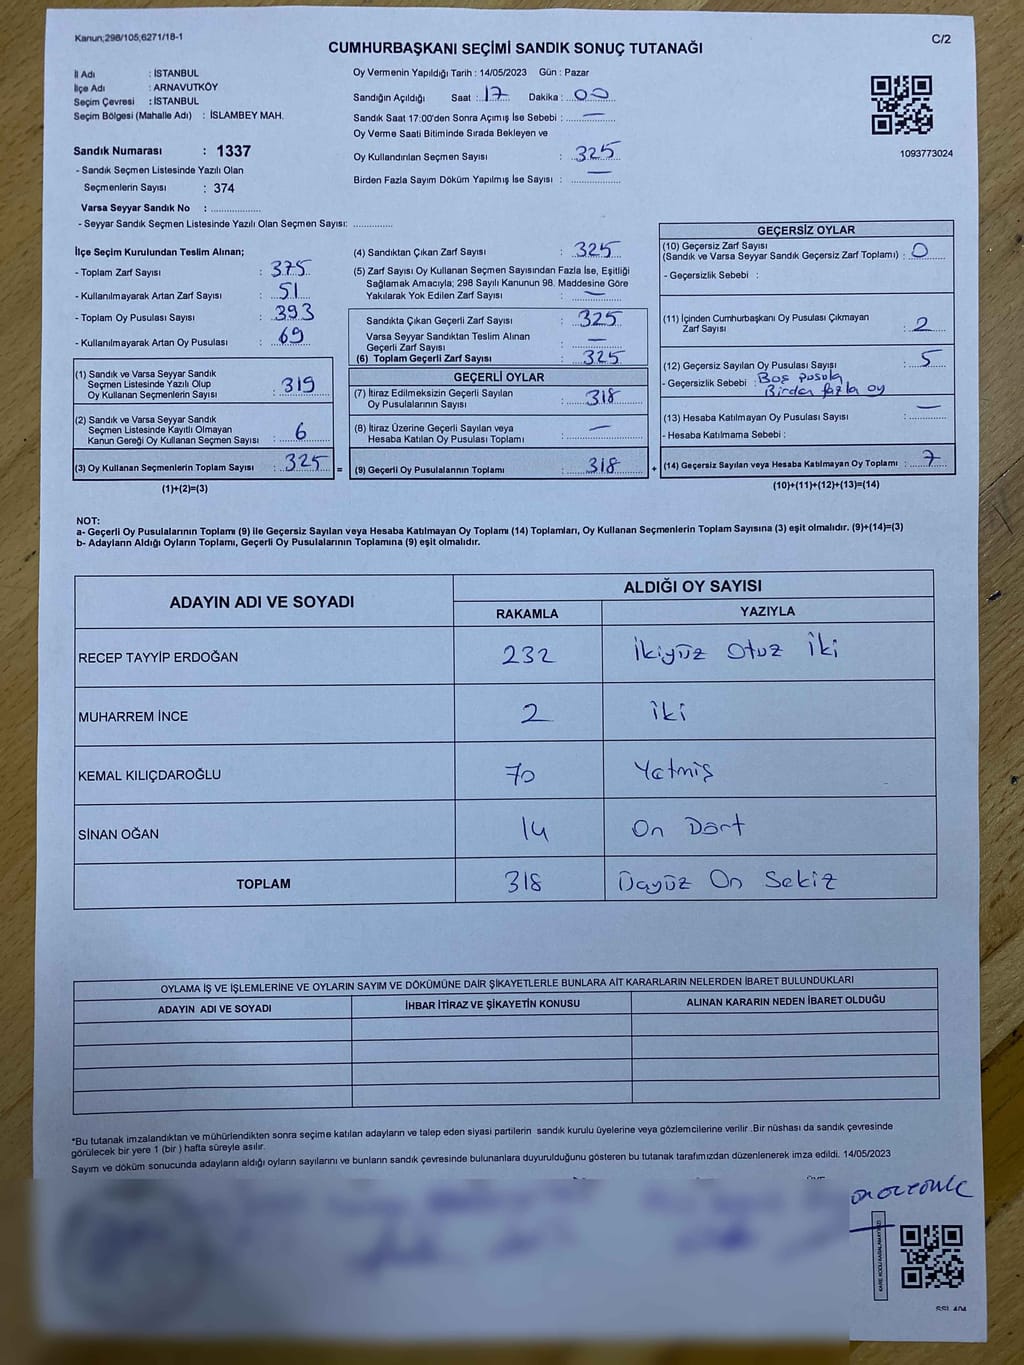 Kanun;298/105;6271/18-1
C/2
CUMHURBAŞKANI SEÇİMİ SANDIK SONUÇ TUTANAĞI
İl Adı : İSTANBUL
İlçe Adı : ARNAVUTKÖY
Seçim Çevresi : İSTANBUL
Seçim Bölgesi (Mahalle Adı) : İSLAMBEY MAH.
Sandık Numarası : 1337
- Sandık Seçmen Listesinde Yazılı Olan
Seçmenlerin Sayısı : 374
Varsa Seyyar Sandık No :
- Seyyar Sandık Seçmen Listesinde Yazılı Olan Seçmen Sayısı:
Oy Vermenin Yapıldığı Tarih : 14/05/2023 Gün : Pazar
Sandığın Açıldığı Saat : 17 Dakika : 00
Sandık Saat 17:00'den Sonra Açımış İse Sebebi : —
Oy Verme Saati Bitiminde Sırada Bekleyen ve
Oy Kullandırılan Seçmen Sayısı : 325
Birden Fazla Sayım Döküm Yapılmış İse Sayısı : —
1093773024
İlçe Seçim Kurulundan Teslim Alınan;
- Toplam Zarf Sayısı : 375
- Kullanılmayarak Artan Zarf Sayısı : 51
- Toplam Oy Pusulası Sayısı : 393
- Kullanılmayarak Artan Oy Pusulası : 69
(1) Sandık ve Varsa Seyyar Sandık
Seçmen Listesinde Yazılı Olup
Oy Kullanan Seçmenlerin Sayısı : 319
(2) Sandık ve Varsa Seyyar Sandık
Seçmen Listesinde Kayıtlı Olmayan
Kanun Gereği Oy Kullanan Seçmen Sayısı : 6
(3) Oy Kullanan Seçmenlerin Toplam Sayısı : 325 =
(1)+(2)=(3)
(4) Sandıktan Çıkan Zarf Sayısı : 325
(5) Zarf Sayısı Oy Kullanan Seçmen Sayısından Fazla İse, Eşitliği
Sağlamak Amacıyla; 298 Sayılı Kanunun 98. Maddesine Göre
Yakılarak Yok Edilen Zarf Sayısı : —
Sandıkta Çıkan Geçerli Zarf Sayısı : 325
Varsa Seyyar Sandıktan Teslim Alınan
Geçerli Zarf Sayısı : —
(6) Toplam Geçerli Zarf Sayısı : 325
GEÇERLİ OYLAR
(7) İtiraz Edilmeksizin Geçerli Sayılan
Oy Pusulalarının Sayısı : 318
(8) İtiraz Üzerine Geçerli Sayılan veya
Hesaba Katılan Oy Pusulası Toplamı : —
(9) Geçerli Oy Pusulalarının Toplamı : 318 +
GEÇERSİZ OYLAR
(10) Geçersiz Zarf Sayısı
(Sandık ve Varsa Seyyar Sandık Geçersiz Zarf Toplamı) : 0
- Geçersizlik Sebebi :
(11) İçinden Cumhurbaşkanı Oy Pusulası Çıkmayan
Zarf Sayısı : 2
(12) Geçersiz Sayılan Oy Pusulası Sayısı : 5
- Geçersizlik Sebebi : Boş pusula
Birden fazla oy
(13) Hesaba Katılmayan Oy Pusulası Sayısı : —
- Hesaba Katılmama Sebebi :
(14) Geçersiz Sayılan veya Hesaba Katılmayan Oy Toplamı : 7
(10)+(11)+(12)+(13)=(14)
NOT:
a- Geçerli Oy Pusulalarının Toplamı (9) ile Geçersiz Sayılan veya Hesaba Katılmayan Oy Toplamı (14) Toplamları, Oy Kullanan Seçmenlerin Toplam Sayısına (3) eşit olmalıdır. (9)+(14)=(3)
b- Adayların Aldığı Oyların Toplamı, Geçerli Oy Pusulalarının Toplamına (9) eşit olmalıdır.
ADAYIN ADI VE SOYADI
ALDIĞI OY SAYISI
RAKAMLA YAZIYLA
RECEP TAYYİP ERDOĞAN 232 İkiyüz Otuz İki
MUHARREM İNCE 2 İki
KEMAL KILIÇDAROĞLU 70 Yetmiş
SİNAN OĞAN 14 On Dört
TOPLAM 318 Üçyüz On Sekiz
OYLAMA İŞ VE İŞLEMLERİNE VE OYLARIN SAYIM VE DÖKÜMÜNE DAİR ŞİKAYETLERLE BUNLARA AİT KARARLARIN NELERDEN İBARET BULUNDUKLARI
ADAYIN ADI VE SOYADI İHBAR İTİRAZ VE ŞİKAYETİN KONUSU ALINAN KARARIN NEDEN İBARET OLDUĞU
*Bu tutanak imzalandıktan ve mühürlendikten sonra seçime katılan adayların ve talep eden siyasi partilerin sandık kurulu üyelerine veya gözlemcilerine verilir .Bir nüshası da sandık çevresinde
görülecek bir yere 1 (bir ) hafta süreyle asılır.
Sayım ve döküm sonucunda adayların aldığı oyların sayılarını ve bunların sandık çevresinde bulunanlara duyurulduğunu gösteren bu tutanak tarafımızdan düzenlenerek imza edildi. 14/05/2023